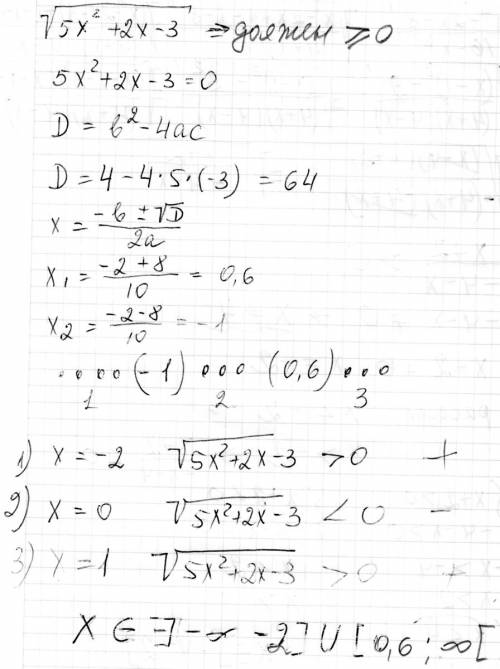 √(5x² + 2x - 3) ⇒ должен ⩾ 0
5x² + 2x - 3 = 0
D = b² - 4ac
D = 4 - 4·5·(-3) = 64
x = (-b ± √D)/(2a)
x₁ = (-2 + 8)/10 = 0,6
x₂ = (-2 - 8)/10 = -1
.... (-1) ... (0,6) ...
1 2 3
1) x = -2 √(5x² + 2x - 3) > 0 +
2) x = 0 √(5x² + 2x - 3) < 0 -
3) Y = 1 √(5x² + 2x - 3) > 0 +
X ∈ ]-∞ -2] ∪ [0,6 ; ∞[